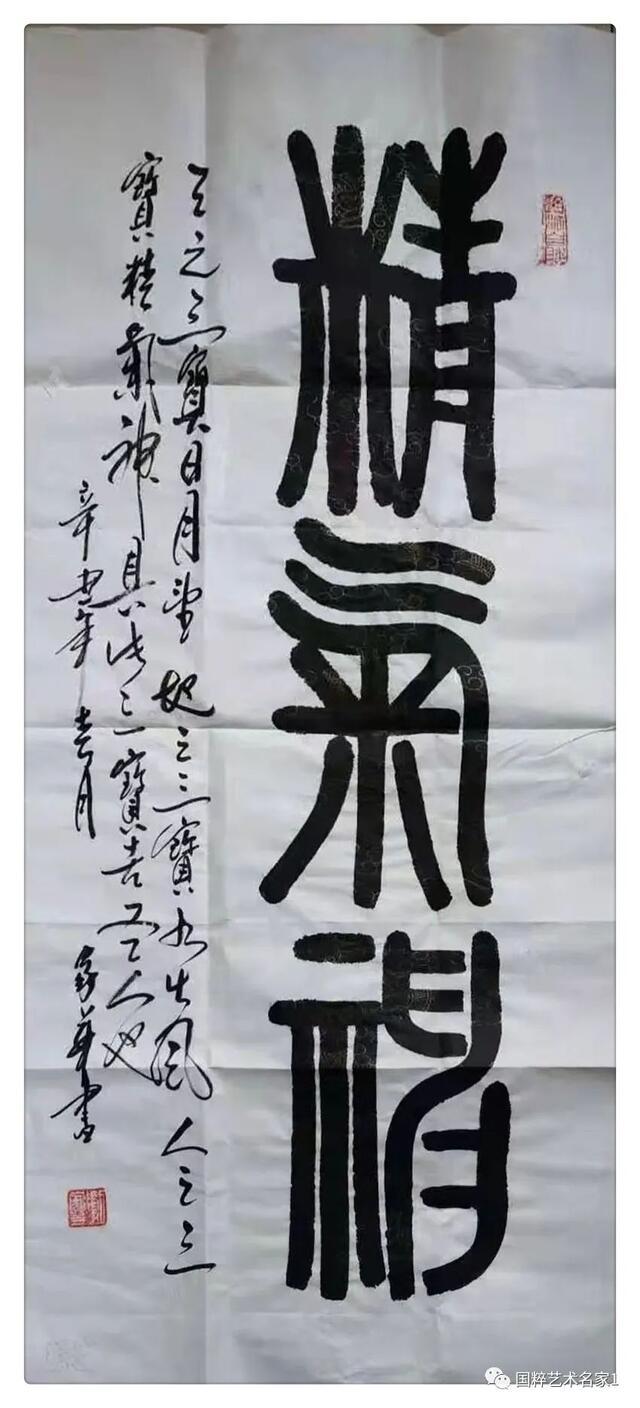 精氣神
天之三寶日月星地之三寶水火風人之三
寶精氣神具此三寶者聖人也
辛丑年 月
家華書
国粹艺术名家1